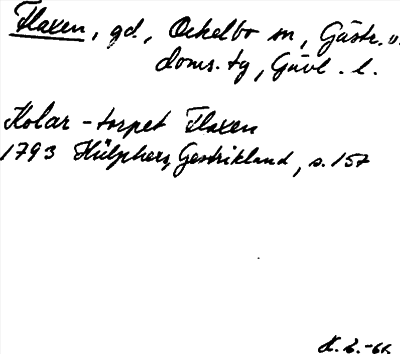 Flaxen, gd., Ockelbo sn, Gästr. ö.
doms. tg, Gävl. l.
Kolar-torpet Flaxen
1793 Hülphers, Gestrikland, s. 157